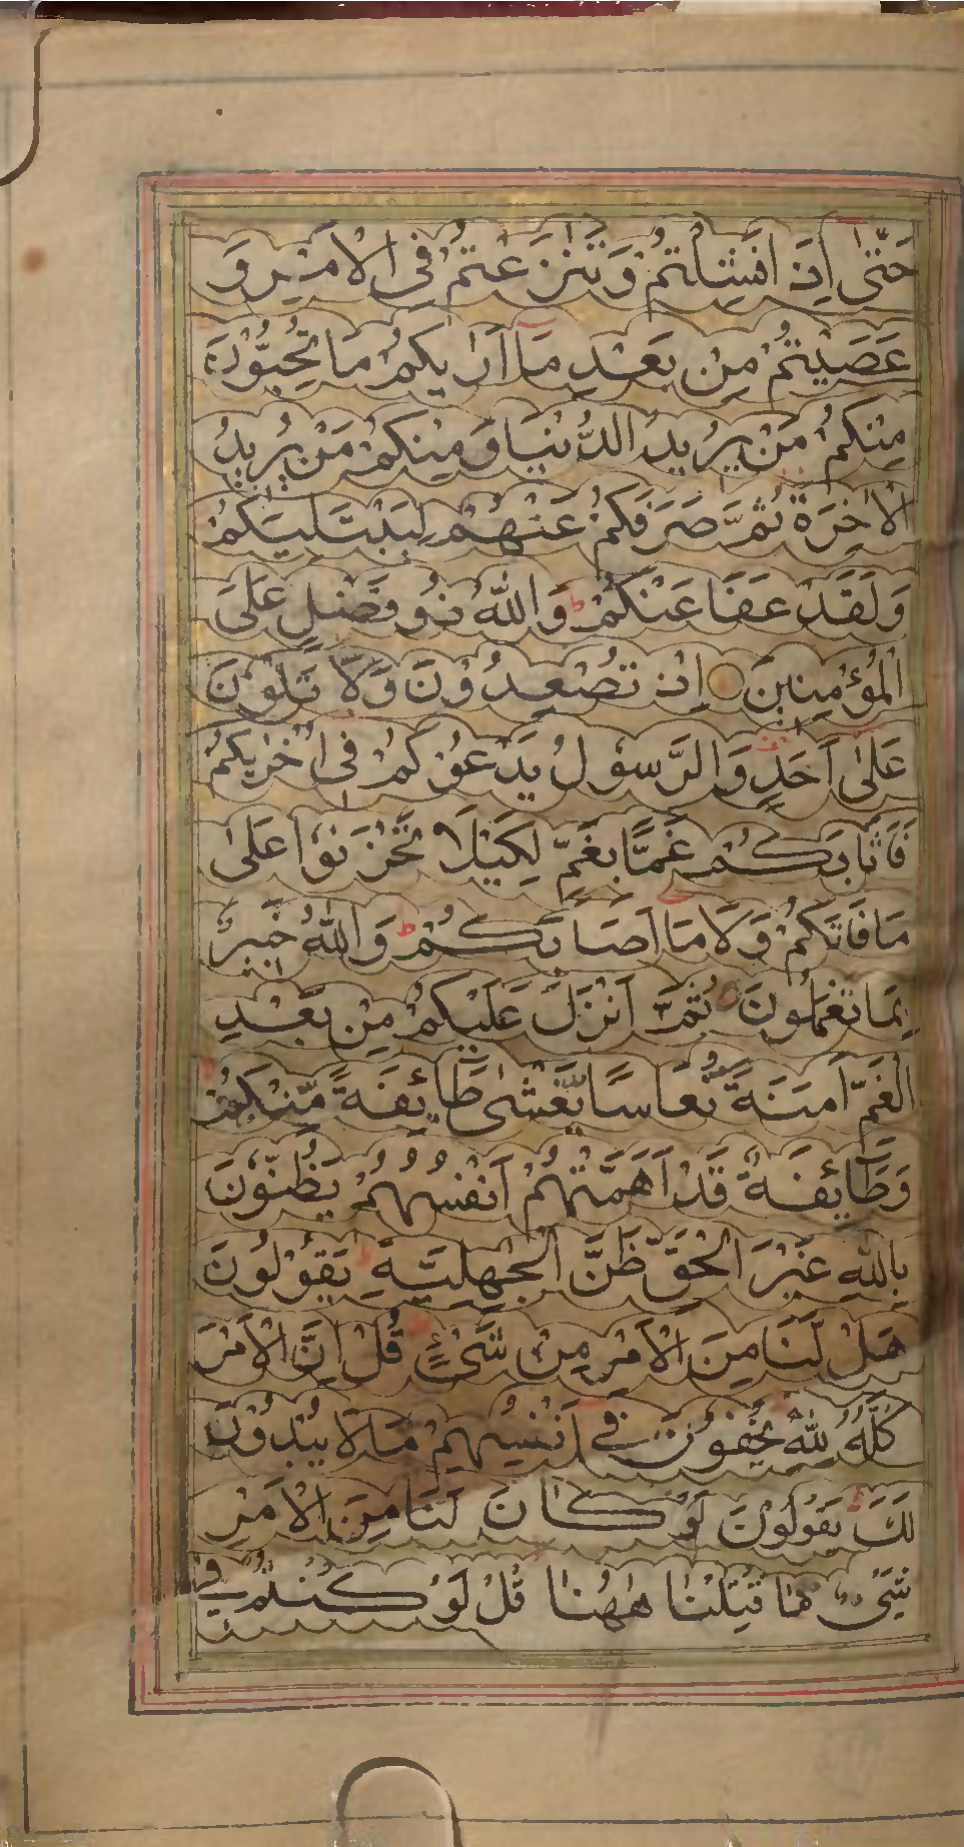 حَتّٰى اِذَ افَشِلْتُمْ وَتَنٰزَعْتُمْ فِى الْاَمْرِ وَ
عَصَيْتُمْ مِنْ بَعْدِ مَا اَرٰيكُمْ مَا تُحِبُّوْنَ
مِنْكُمْ مَنْ يُرِيدُ الدُّنْيَا وَمِنْكُمْ مَنْ يُرِيدُ
الْاٰخِرَةَ ثُمَّ صَرَفَكُمْ عَنْهُمْ لِيَبْتَلِيَكُمْ
وَلَقَدْ عَفَا عَنْكُمْ ط وَاللّٰهُ ذُو فَضْلٍ عَلَى
الْمُؤْمِنِينَ اِذْ تُصْعِدُوْنَ وَلَا تَلْوٗنَ
عَلٰى اَحَدٍ وَالرَّسُوْلُ يَدْعُوْكُمْ فِى اُخْرٰيكُمْ
فَاَثَابَكُمْ غَمًّا بِغَمٍّ لِكَيْلَا تَحْزَنُوْا عَلٰى
مَا فَاتَكُمْ وَلَا مَا اَصَابَكُمْ ط وَاللّٰهُ خَبِيرٌ
بِمَا تَعْمَلُونَ ثُمَّ اَنْزَلَ عَلَيْكُمْ مِنْ بَعْدِ
الْغَمِّ اَمَنَةً نُعَاسًا يَغْشٰى طَائِفَةً مِّنْكُمْ
وَطَائِفَةٌ قَدْ اَهَمَّتْهُمْ اَنْفُسُهُمْ يَظُنُّوْنَ
بِاللّٰهِ غَيْرَ الْحَقِّ ظَنَّ الْجٰهِلِيَّةِ يَقُوْلُوْنَ
هَلْ لَنَا مِنَ الْاَمْرِ مِنْ شَىْءٍ قُلْ اِنَّ الْاَمْرَ
كُلَّهُ لِلّٰهِ يُخْفُوْنَ فِى اَنْفُسِهِمْ مَا لَا يُبْدُوْنَ
لَكَ يَقُولُوْنَ لَوْ كَانَ لَنَا مِنَ الْاَمْرِ
شَىْءٌ مَا قُتِلْنَا هٰهُنَا قُلْ لَوْ كُنْتُمْ فِى